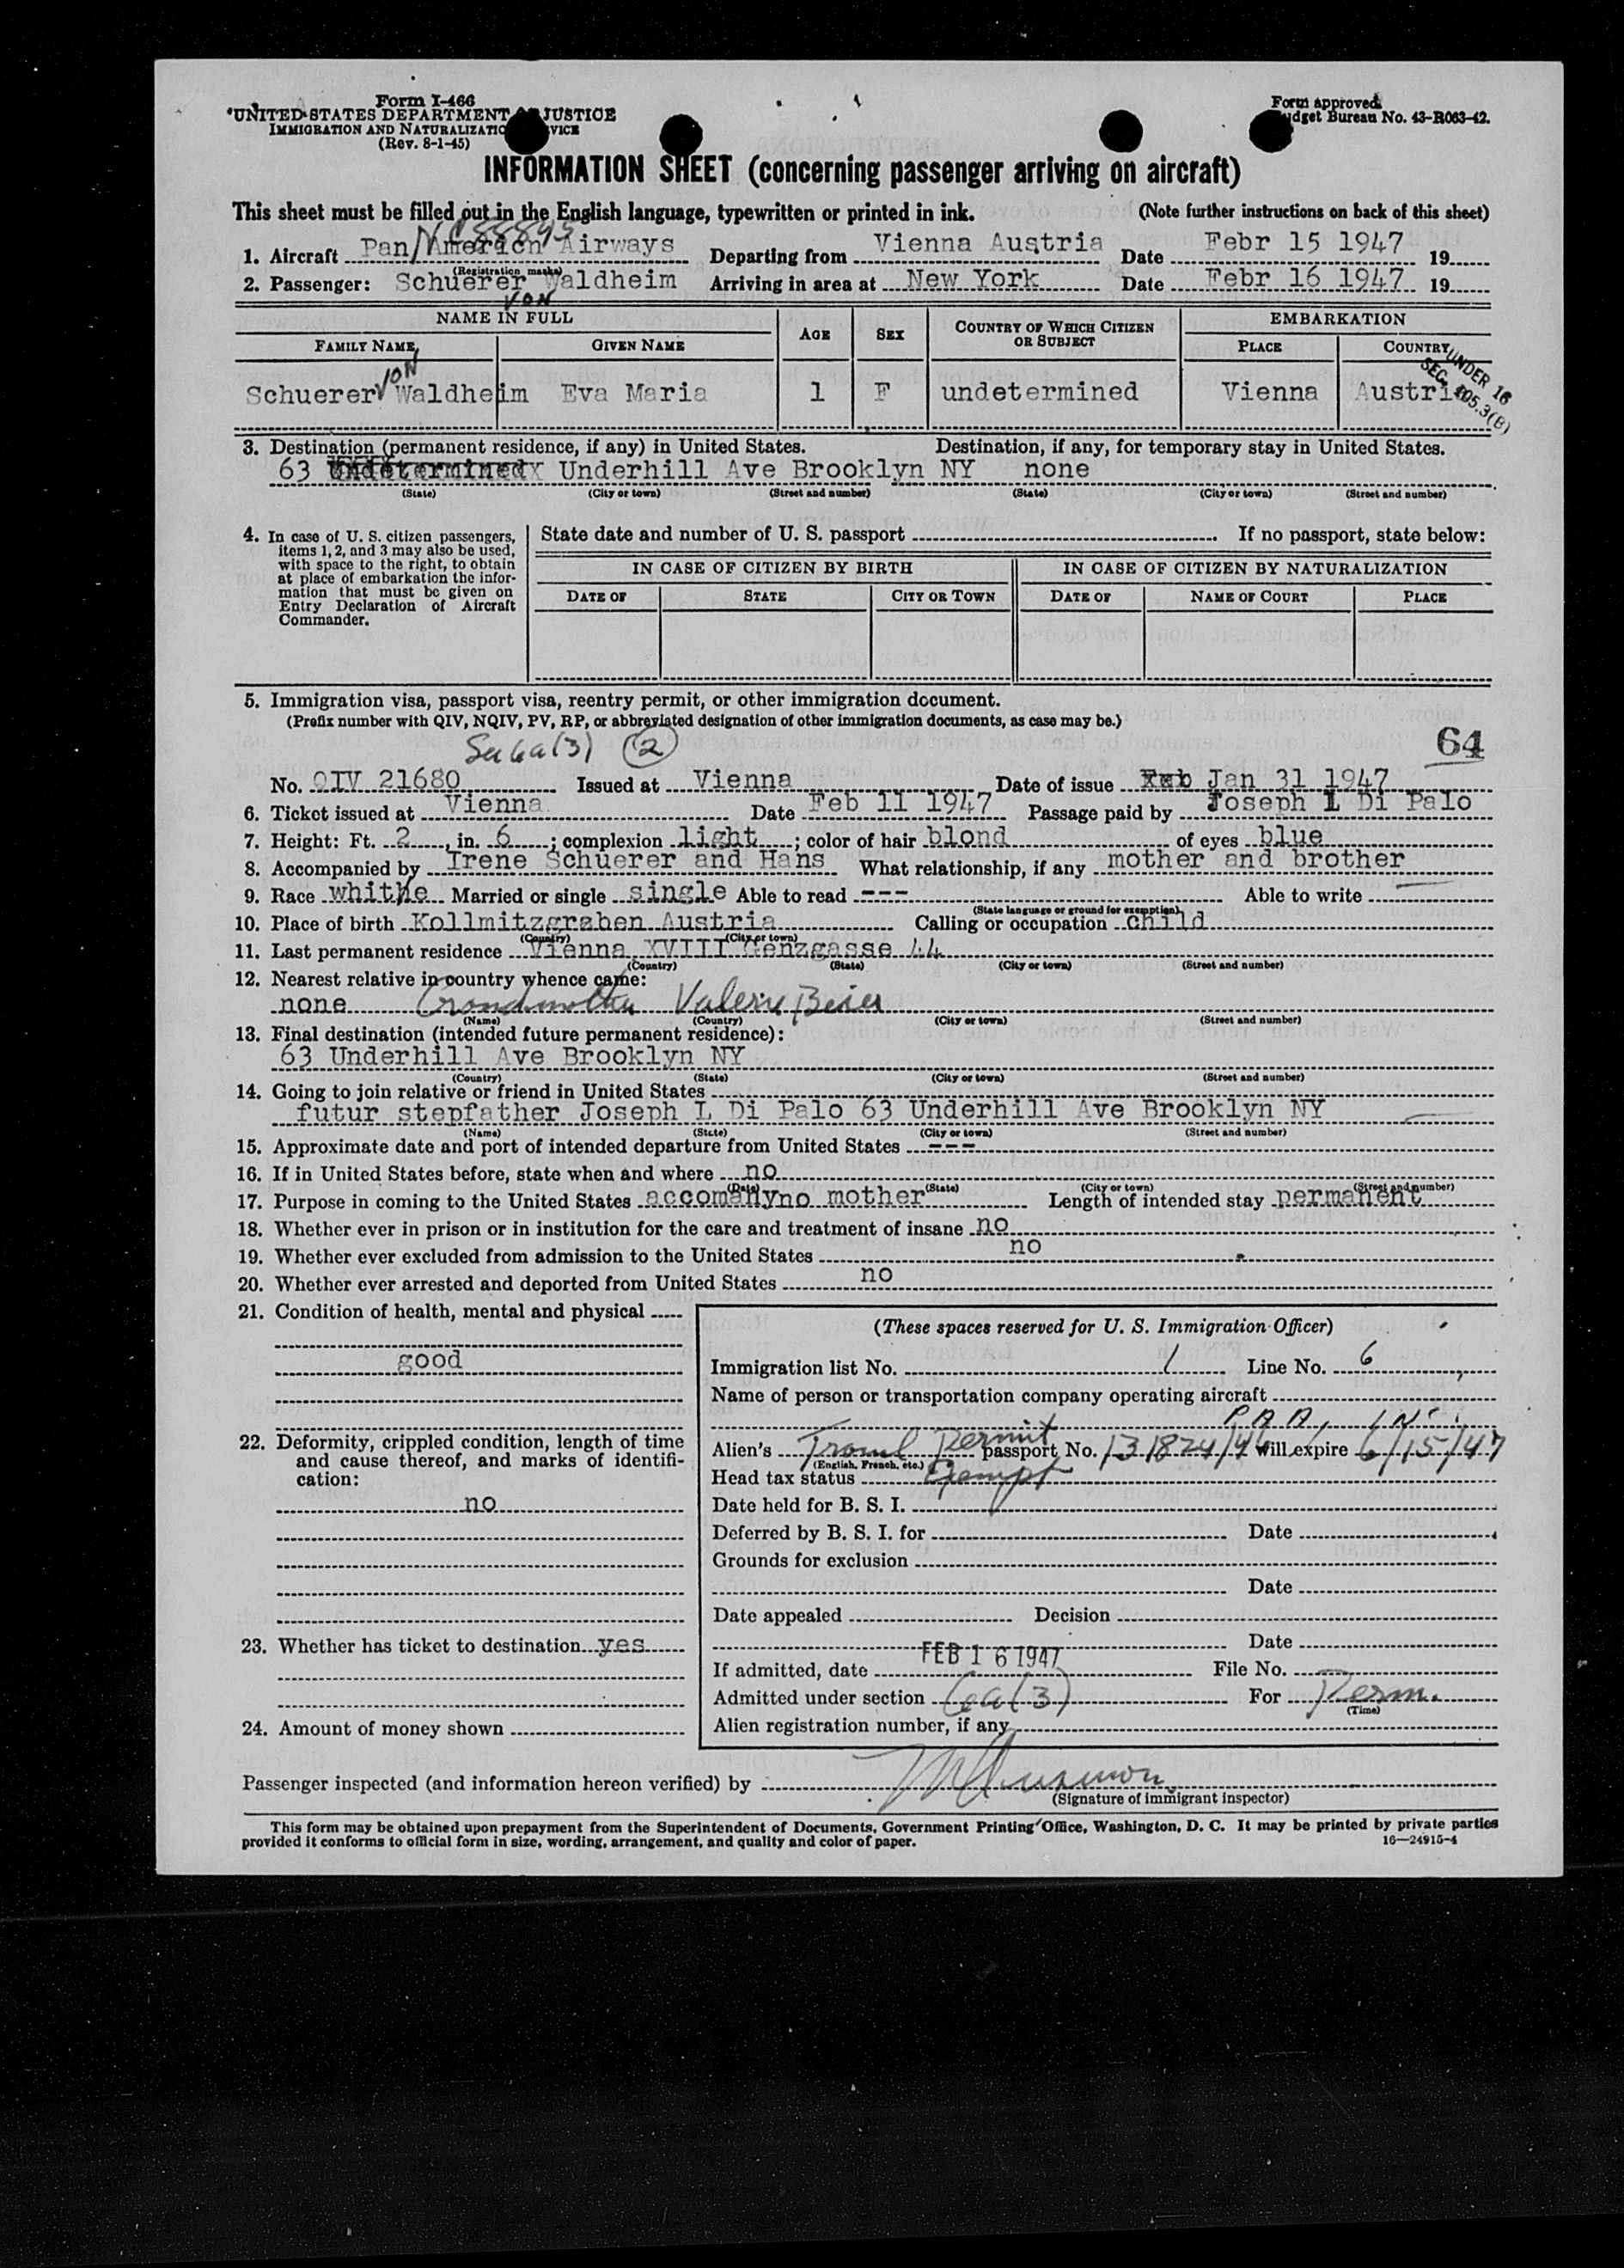 Form I-466
UNITED STATES DEPARTMENT OF JUSTICE
IMMIGRATION AND NATURALIZATION SERVICE
(Rev. 8-1-45)
Form approved.
Budget Bureau No. 43-R063-42.
INFORMATION SHEET (concerning passenger arriving on aircraft)
This sheet must be filled out in the English language, typewritten or printed in ink. (Note further instructions on back of this sheet)
NC88893
1. Aircraft Pan Americon Airways Departing from Vienna Austria Date Febr 15 1947 19
(Registration marks)
2. Passenger: Schuerer Waldheim Arriving in area at New York Date Febr 16 1947 19
VON
NAME IN FULL AGE SEX COUNTRY OF WHICH CITIZEN OR SUBJECT EMBARKATION
FAMILY NAME GIVEN NAME PLACE COUNTRY
UNDER 16
SEC. 105.3(B)
Schuerer VON Waldheim Eva Maria 1 F undetermined Vienna Austria
3. Destination (permanent residence, if any) in United States. Destination, if any, for temporary stay in United States.
63 Underhill Ave Brooklyn NY none
(State) (City or town) (Street and number) (State) (City or town) (Street and number)
4. In case of U. S. citizen passengers, items 1, 2, and 3 may also be used, with space to the right, to obtain at place of embarkation the information that must be given on Entry Declaration of Aircraft Commander.
State date and number of U. S. passport If no passport, state below:
IN CASE OF CITIZEN BY BIRTH IN CASE OF CITIZEN BY NATURALIZATION
DATE OF STATE CITY OR TOWN DATE OF NAME OF COURT PLACE
5. Immigration visa, passport visa, reentry permit, or other immigration document.
(Prefix number with QIV, NQIV, PV, RP, or abbreviated designation of other immigration documents, as case may be.)
6a(3) (2)
64
No. QIV 21680 Issued at Vienna Date of issue Jan 31 1947
6. Ticket issued at Vienna Date Feb 11 1947 Passage paid by Joseph L Di Palo
7. Height: Ft. 2, in. 6; complexion light; color of hair blond of eyes blue
8. Accompanied by Irene Schuerer and Hans What relationship, if any mother and brother
9. Race whithe Married or single single Able to read --- Able to write
(State language or ground for exemption)
10. Place of birth Kollmitzgraben Austria Calling or occupation child
(Country) (City or town)
11. Last permanent residence Vienna XVIII Genzgasse 44
(Country) (State) (City or town) (Street and number)
12. Nearest relative in country whence came:
none Grandmother Valerie Beier
(Name) (Country) (City or town) (Street and number)
13. Final destination (intended future permanent residence):
63 Underhill Ave Brooklyn NY
(Country) (State) (City or town) (Street and number)
14. Going to join relative or friend in United States
futur stepfather Joseph L Di Palo 63 Underhill Ave Brooklyn NY
(Name) (State) (City or town) (Street and number)
15. Approximate date and port of intended departure from United States ---
16. If in United States before, state when and where no
(Date) (State) (City or town) (Street and number)
17. Purpose in coming to the United States accomanyno mother Length of intended stay permanent
18. Whether ever in prison or in institution for the care and treatment of insane no
19. Whether ever excluded from admission to the United States no
20. Whether ever arrested and deported from United States no
21. Condition of health, mental and physical
good
22. Deformity, crippled condition, length of time and cause thereof, and marks of identification:
no
23. Whether has ticket to destination yes
24. Amount of money shown
(These spaces reserved for U. S. Immigration Officer)
Immigration list No. 1 Line No. 6
Name of person or transportation company operating aircraft
P A A, INC.
Alien's Travel Permit passport No. 131824/4 Will expire 6/15/47
(English, French, etc.)
Head tax status Exempt
Date held for B. S. I.
Deferred by B. S. I. for Date
Grounds for exclusion
Date
Date appealed Decision
Date
If admitted, date FEB 16 1947 File No.
Admitted under section 6a(3) For Perm.
(Time)
Alien registration number, if any
Passenger inspected (and information hereon verified) by
(Signature of immigrant inspector)
This form may be obtained upon prepayment from the Superintendent of Documents, Government Printing Office, Washington, D. C. It may be printed by private parties
provided it conforms to official form in size, wording, arrangement, and quality and color of paper. 16—24915-4